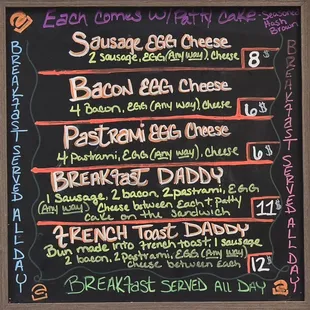 Each comes w/ Patty Cake - Seasoned
Hash
Brown
BREAKFAST SERVED ALL DAY
Sausage EGG Cheese
2 Sausage, EGG (Any Way), Cheese
8$
Bacon EGG Cheese
4 Bacon, EGG (Any Way), Cheese
6$
Pastrami EGG Cheese
4 Pastrami, EGG (Any Way), Cheese
6$
BREAKFAST DADDY
1 Sausage, 2 bacon, 2 pastrami, EGG
(Any Way) Cheese between Each + Patty
Cake on the Sandwich
11$
FRENCH Toast DADDY
Bun made into French toast, 1 sausage
2 bacon, 2 Pastrami, EGG (Any Way)
Cheese between Each
12$
BREAKFAST SERVED ALL DAY
BREAKFAST SERVED ALL DAY